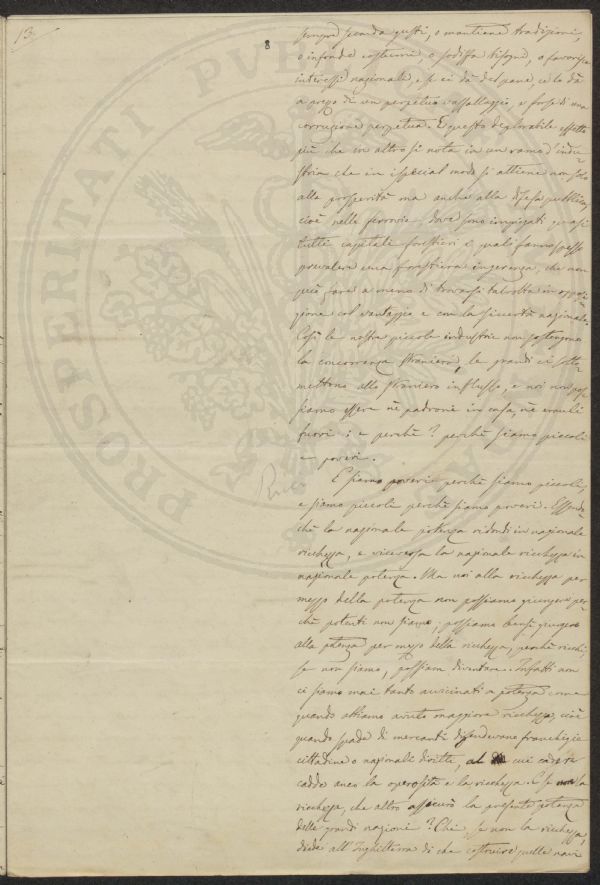 13.
8
PROSPERITATI PUBL
sempre seconda gusti, o mantiene tradizioni,
o infonde costumi, o sodisfa bisogni, o favorisce
interessi nazionali, e se ci dà del pane, ce lo dà
a prezzo di un perpetuo vassallaggio, e forse di una
corruzione perpetua. E questo deplorabile effetto
più che in altro si nota in un ramo d'indu-
stria che in ispecial modo si attiene non solo
alla prosperità ma anche alla difesa pubblica,
cioè nelle ferrovie dove sono impiegati quasi
tutti capitali forestieri i quali fanno spesso
prevalere una forastiera ingerenza, che non
può fare a meno di trovarsi talvolta in opposi-
zione col vantaggio e con la sicurtà nazionale.
Così le nostre piccole industrie non sostengono
la concorrenza straniera, le grandi ci sotto-
mettono allo straniero influsso, e noi non pos-
siamo essere nè padroni in casa, nè emuli
fuori: e perchè? perchè siamo piccoli
e poveri.
E siamo poveri perchè siamo piccoli,
e siamo piccoli perchè siamo poveri. Essendo-
chè la nazionale potenza ridondi in nazionale
ricchezza, e viceversa la nazionale ricchezza in
nazionale potenza. Ma noi alla ricchezza per
mezzo della potenza non possiamo giungere per-
chè potenti non siamo; possiamo bensì giungere
alla potenza per mezzo della ricchezza, perchè ricchi,
se non siamo, possiam diventare. Infatti non
ci siamo mai tanto avvicinati a potenza come
quando abbiamo avuto maggiore ricchezza, cioè
quando spade di mercanti difendevano franchigie
cittadine o nazionali diritti, al cui cadere
cadde anco la operosità e la ricchezza. E se non la
ricchezza, che altro assicurò la presente potenza
delle grandi nazioni? Chi se non la ricchezza,
diede all'Inghilterra di che costruire quelle navi